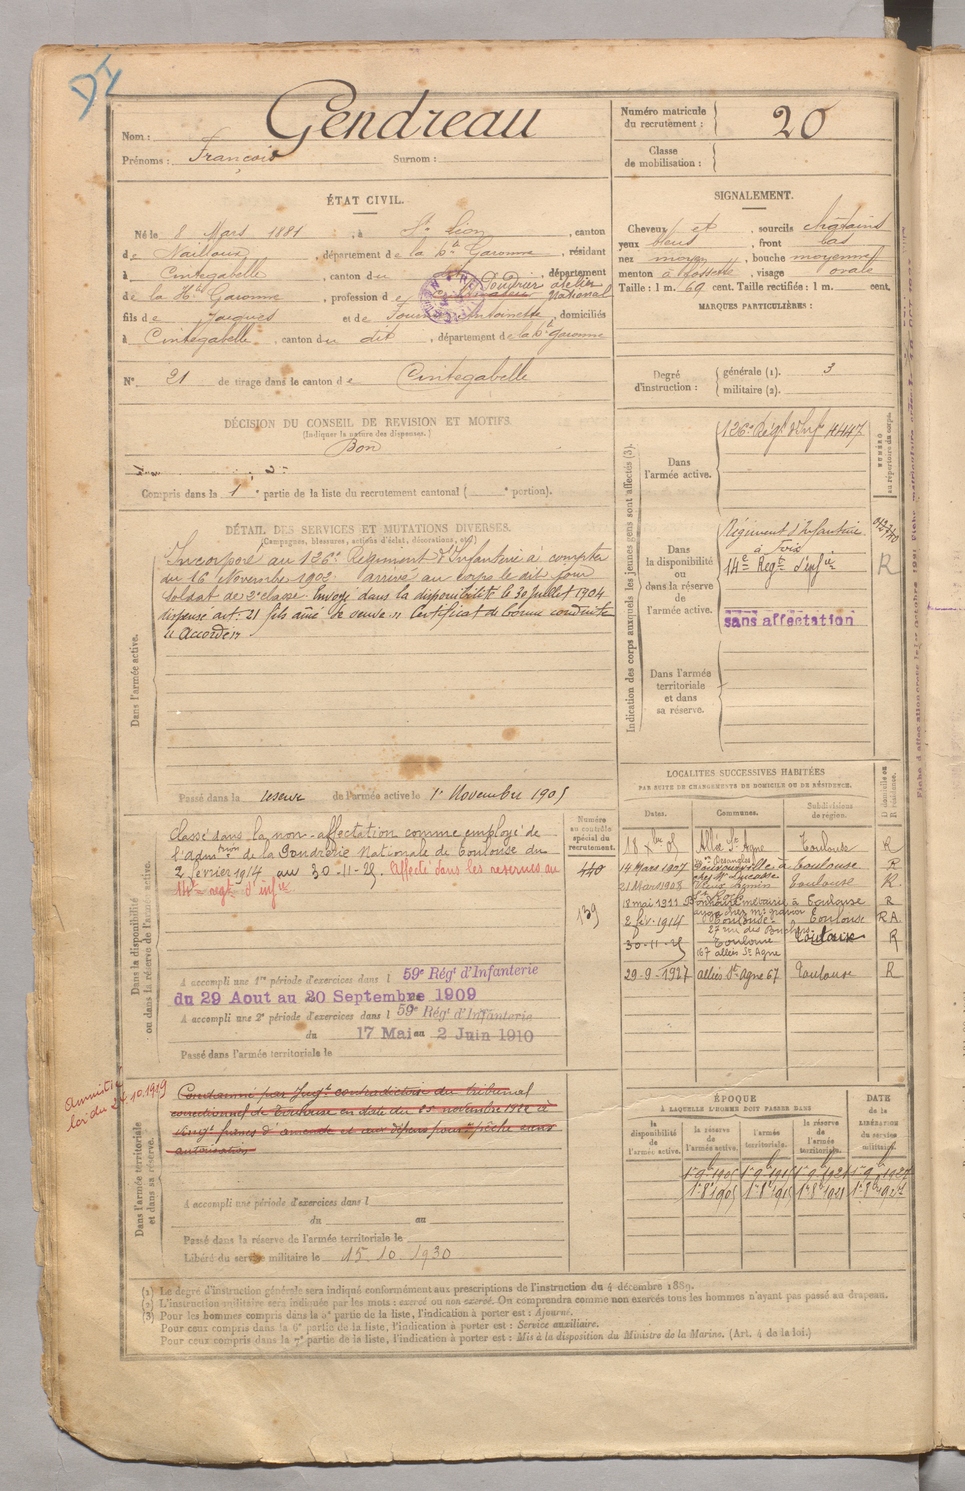 DI
Nom : Gendreau
Prénoms : François Surnom :
Numéro matricule du recrutement : 20
Classe de mobilisation :
ÉTAT CIVIL.
Né le 8 Mars 1881, à St Léon, canton
de Nailloux, département de la Hte Garonne, résidant
à Cintegabelle, canton du dit, département
de la Hte Garonne, profession de cultivateur Poudrier atelier National
fils de Jacques et de Antoinette, domiciliés
à Cintegabelle, canton du dit, département de la Hte Garonne
N° 21 de tirage dans le canton de Cintegabelle
SIGNALEMENT.
Cheveux et sourcils châtains
yeux bleus, front bas
nez moyen, bouche moyenne
menton à fossette, visage ovale
Taille : 1 m. 69 cent. Taille rectifiée : 1 m. cent.
MARQUES PARTICULIÈRES :
Degré d'instruction :
générale (1). 3
militaire (2).
DÉCISION DU CONSEIL DE REVISION ET MOTIFS.
(Indiquer la nature des dispenses.)
Bon
Compris dans la 1e partie de la liste du recrutement cantonal ( e portion).
DÉTAIL DES SERVICES ET MUTATIONS DIVERSES.
(Campagnes, blessures, actions d'éclat, décorations, etc.)
Dans l'armée active.
Incorporé au 126e Régiment d'Infanterie à compter
du 16 Novembre 1902. arrivé au corps le dit jour
soldat de 2e classe. Envoyé dans la disponibilité le 30 juillet 1904
dispensé art. 21 fils aîné de veuve. Certificat de bonne conduite
" Accordé "
Passé dans la réserve de l'armée active le 1er Novembre 1905
Indication des corps auxquels les jeunes gens sont affectés (3).
NUMÉRO au répertoire du corps.
Dans l'armée active.
126e Régt d'Infie 4447
Dans la disponibilité ou dans la réserve de l'armée active.
Régiment d'Infanterie
à Foix
14e Regt d'infie
R
sans affectation
Dans l'armée territoriale et dans sa réserve.
LOCALITÉS SUCCESSIVES HABITÉES
PAR SUITE DE CHANGEMENTS DE DOMICILE OU DE RÉSIDENCE.
Dates. Communes. Subdivisions de région. D domicile ou R résidence.
18 9bre 05 Allée St Agne Toulouse R
14 Mars 1907 à Toulouse R
21 Mars 1908 Vieux chemin Toulouse R
18 mai 1911 à Toulouse R
2 fév. 1914 Toulouse Toulouse RA
27 rue des
30-11-25 Toulouse Toulouse R
67 allées St Agne
29-9-1927 allées St Agne 67 Toulouse R
Dans la disponibilité ou dans la réserve de l'armée active.
Numéro au contrôle spécial du recrutement.
440
139
Classé dans la non-affectation comme employé de
l'admtion de la Poudrerie Nationale de Toulouse du
2 février 1914 au 30-11-25. Affecté dans les réserves au
14e regt d'infie
A accompli une 1re période d'exercices dans l 59e Régt d'Infanterie
du 29 Aout au 20 Septembre 1909
A accompli une 2e période d'exercices dans l 59e Régt d'Infanterie
du 17 Mai au 2 Juin 1910
Passé dans l'armée territoriale le
Amnistie
loi du 24.10.1919
Dans l'armée territoriale et dans sa réserve.
Condamné par Jugt contradictoire du tribunal
correctionnel de Toulouse en date du 25 novembre 1912 à
vingt francs d'amende et aux dépens pour pêche sans
autorisation
A accompli une période d'exercices dans l
du au
Passé dans la réserve de l'armée territoriale le
Libéré du service militaire le 15.10.1930
ÉPOQUE
À LAQUELLE L'HOMME DOIT PASSER DANS
DATE de la LIBÉRATION du service militaire.
la disponibilité de l'armée active. la réserve de l'armée active. l'armée territoriale. la réserve de l'armée territoriale.
(1) Le degré d'instruction générale sera indiqué conformément aux prescriptions de l'instruction du 4 décembre 1889.
(2) L'instruction militaire sera indiquée par les mots : exercé ou non exercé. On comprendra comme non exercés tous les hommes n'ayant pas passé au drapeau.
(3) Pour les hommes compris dans la 5e partie de la liste, l'indication à porter est : Ajourné.
Pour ceux compris dans la 6e partie de la liste, l'indication à porter est : Service auxiliaire.
Pour ceux compris dans la 7e partie de la liste, l'indication à porter est : Mis à la disposition du Ministre de la Marine. (Art. 4 de la loi.)